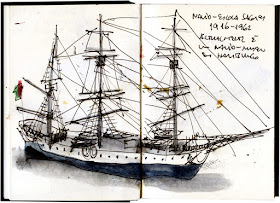 NAVIO-ESCOLA SAGRES
1916-1962
ACTUALMENTE É
UM NAVIO-MUSEU
EM HAMBURGO